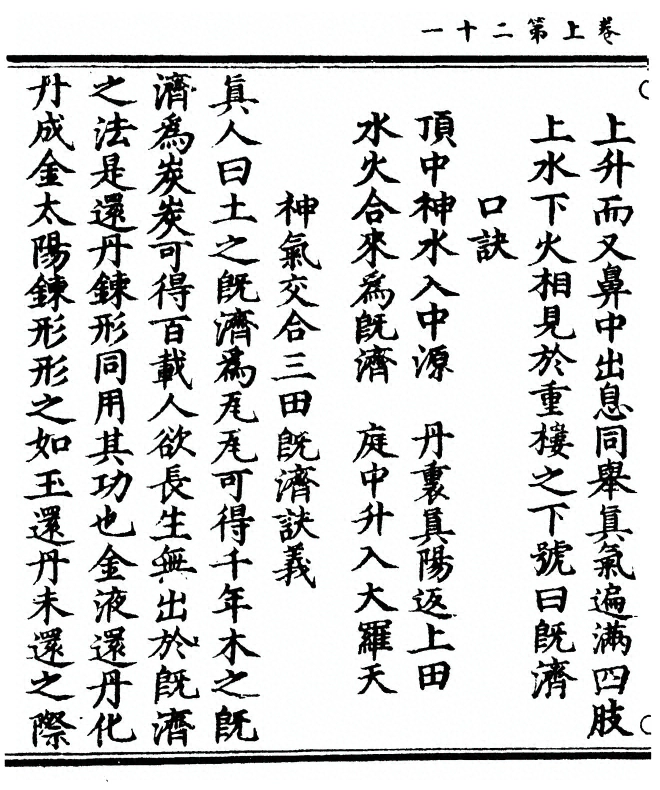 卷上第二十一
上升而又鼻中出息同舉真氣遍滿四肢
上水下火相見於重樓之下號曰既濟
口訣
頂中神水入中源　丹裏真陽返上田
水火合來為既濟　庭中升入大羅天
神氣交合三田既濟訣義
真人曰土之既濟為瓦瓦可得千年木之既
濟為炭炭可得百載人欲長生無出於既濟
之法是還丹鍊形同用其功也金液還丹化
丹成金太陽鍊形形之如玉還丹未還之際